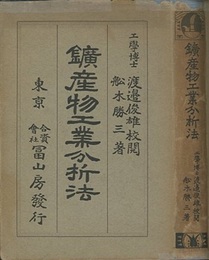 工學博士 渡邊俊雄校閲
舩水勝三著
鑛産物工業分析法
東京 合資會社 冨山房發行
鑛産物工業分析法
工學博士 渡邊俊雄校閲
舩水勝三著